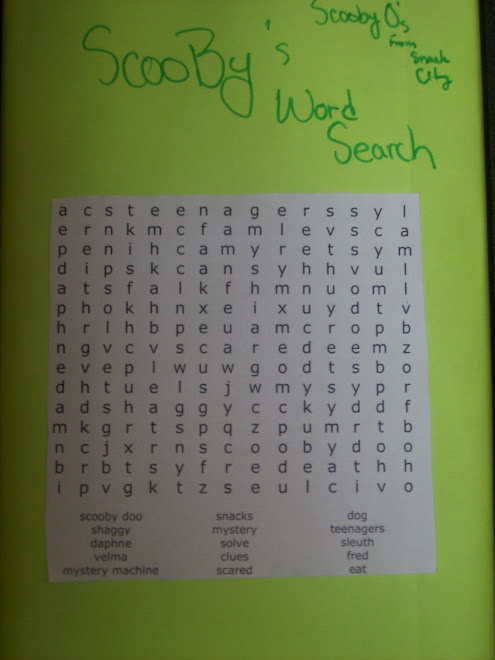 Scooby O's
From
Snack
City
ScooBy's
Word
Search
a c s t e e n a g e r s s y l
e r n k m c f a m l e v s c a
p e n i h c a m y r e t s y m
d i p s k c a n s y h h v u l
a t s f a l k f h m n u o m l
p h o k h n x e i x u y d t v
h r l h b p e u a m c r o p b
n g v c v s c a r e d e e m z
e v e p l w u w g o d t s b o
d h t u e l s j w m y s y p r
a d s h a g g y c c k y d d f
m k g r t s p q z p u m r t b
n c j x r n s c o o b y d o o
b r b t s y f r e d e a t h h
i p v g k t z s e u l c i v o
scooby doo snacks dog
shaggy mystery teenagers
daphne solve sleuth
velma clues fred
mystery machine scared eat